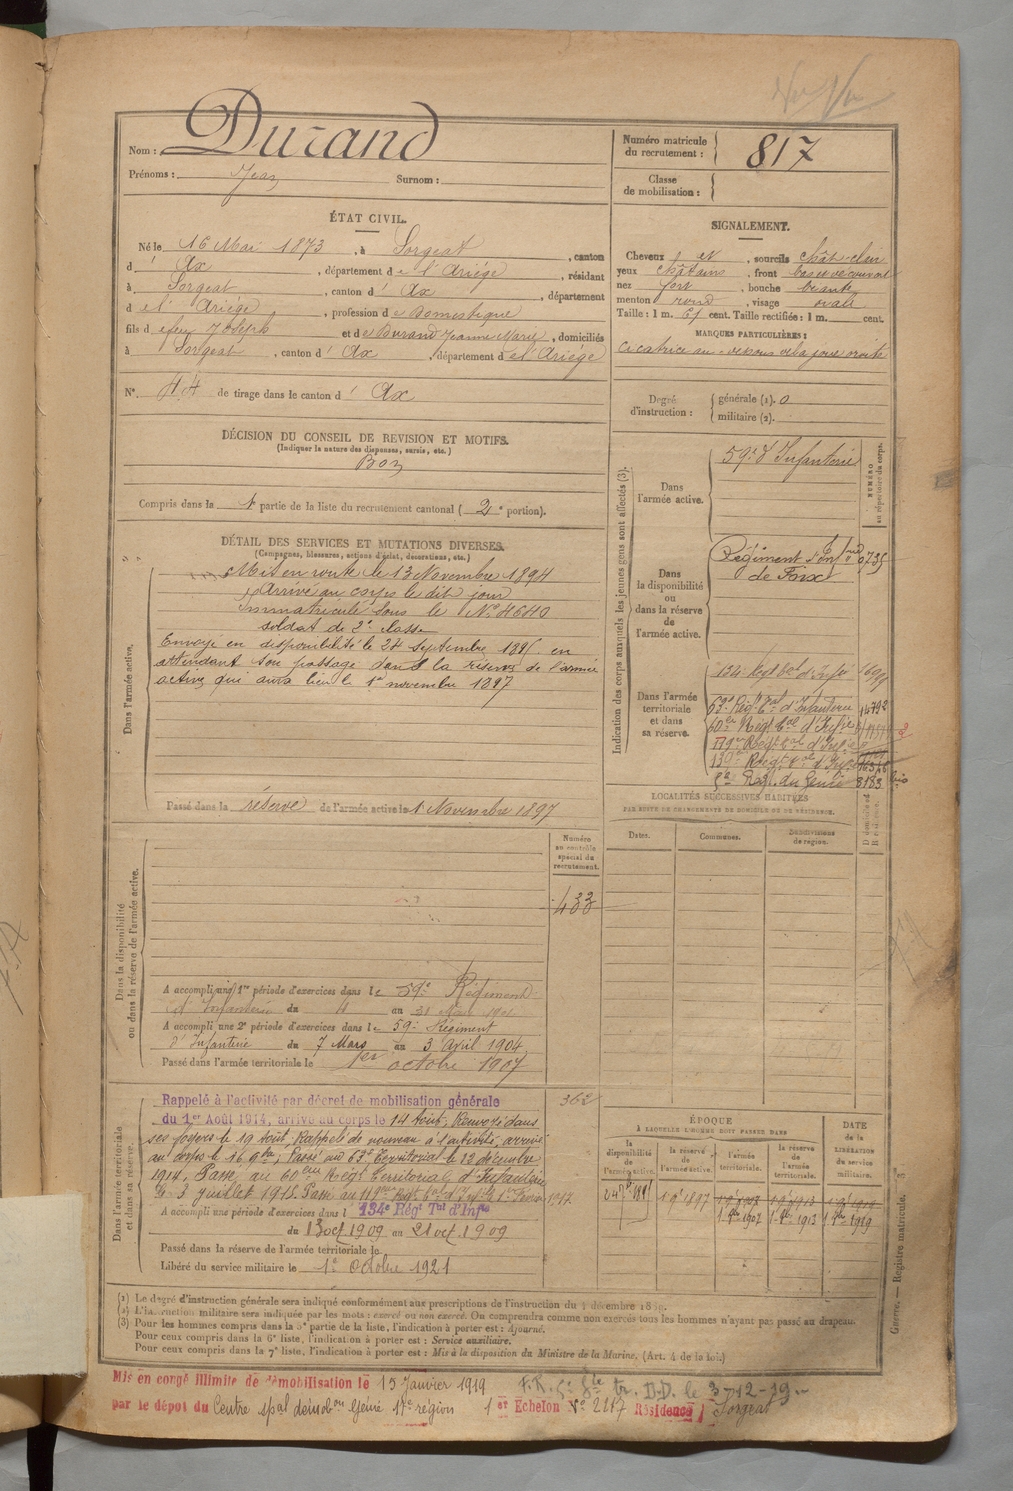 Nom : Durand
Prénoms : Jean Surnom :
Numéro matricule du recrutement : 817
Classe de mobilisation :
ÉTAT CIVIL.
Né le 16 Mai 1873, à Sorgeat, canton
d' Ax, département de l'Ariége, résidant
à Sorgeat, canton d' Ax, département
de l'Ariége, profession de Domestique
fils de feu Joseph et de Durand Jeanne Marie, domiciliés
à Sorgeat, canton d' Ax, département de l'Ariége
N° 44 de tirage dans le canton d' Ax
SIGNALEMENT.
Cheveux et, sourcils chât-clair
yeux châtains, front bas et découvert
nez fort, bouche béante
menton rond, visage ovale
Taille : 1 m. 61 cent. Taille rectifiée : 1 m. cent.
MARQUES PARTICULIÈRES :
Cicatrice au-dessous de la joue droite
Degré d'instruction : générale (1). 0
militaire (2).
DÉCISION DU CONSEIL DE REVISION ET MOTIFS.
(Indiquer la nature des dispenses, sursis, etc.)
Bon
Compris dans la 1e partie de la liste du recrutement cantonal (2e portion).
DÉTAIL DES SERVICES ET MUTATIONS DIVERSES.
(Campagnes, blessures, actions d'éclat, décorations, etc.)
Dans l'armée active.
Mis en route le 13 Novembre 1894
Arrivé au corps le dit jour
Immatriculé sous le N° 4640
soldat de 2e classe
Envoyé en disponibilité le 24 septembre 1895 en
attendant son passage dans la réserve de l'armée
active qui aura lieu le 1er novembre 1897
Passé dans la réserve de l'armée active le 1 Novembre 1897
Indication des corps auxquels les jeunes gens sont affectés (3).
NUMÉRO au répertoire du corps.
Dans l'armée active.
59e d'Infanterie
Dans la disponibilité ou dans la réserve de l'armée active.
Régiment d'Inf
de Foix
Dans l'armée territoriale et dans sa réserve.
134e Regt tal d'Infie
63e Régt tal d'Infanterie 14792
60e Régt tal d'Infie
119e Régt tal d'Infie
130e Régt tal d'Infie
Rég. du Génie 8183
LOCALITÉS SUCCESSIVES HABITÉES
PAR SUITE DE CHANGEMENTS DE DOMICILE OU DE RÉSIDENCE.
Dates. Communes. Subdivisions de région.
Dans la disponibilité ou dans la réserve de l'armée active.
Numéro au contrôle spécial du recrutement.
433
A accompli une 1re période d'exercices dans le 59e Régiment
d'Infanterie du 4 au 31 Mars
A accompli une 2e période d'exercices dans le 59e Régiment
d'Infanterie du 7 Mars au 3 avril 1904
Passé dans l'armée territoriale le 1er octobre 1907
Dans l'armée territoriale et dans sa réserve.
362
Rappelé à l'activité par décret de mobilisation générale
du 1er Août 1914, arrivé au corps le 14 Août, Renvoyé dans
ses foyers le 19 Août. Rappelé de nouveau à l'activité, arrivé
au corps le 16 Passé au 63e Territorial le 12 décembre
1914. Passé au 60eme Régt Territorial d'Infanterie
le 3 juillet 1915. Passé au 119eme Régt tal d'Infie le 1er 1917
A accompli une période d'exercices dans l 134e Régt Tal d'Infie
du 13 oct 1909 au 21 oct. 1909
Passé dans la réserve de l'armée territoriale le
Libéré du service militaire le 1er Octobre 1921
ÉPOQUE
À LAQUELLE L'HOMME DOIT PASSER DANS
la disponibilité de l'armée active. la réserve de l'armée active. l'armée territoriale. la réserve de l'armée territoriale.
DATE de la LIBÉRATION du service militaire.
1897
1907 1913 1919
(1) Le degré d'instruction générale sera indiqué conformément aux prescriptions de l'instruction du 4 décembre 1889.
(2) L'instruction militaire sera indiquée par les mots : exercé ou non exercé. On comprendra comme non exercés tous les hommes n'ayant pas passé au drapeau.
(3) Pour les hommes compris dans la 5e partie de la liste, l'indication à porter est : Ajourné.
Pour ceux compris dans la 6e liste, l'indication à porter est : Service auxiliaire.
Pour ceux compris dans la 7e liste, l'indication à porter est : Mis à la disposition du Ministre de la Marine. (Art. 4 de la loi.)
Guerre. — Registre matricule.
Mis en congé illimité de démobilisation le 15 Janvier 1919
par le dépot du Centre spal démobon Génie 17e région 1er Echelon N° 2117 Résidence Sorgeat
D.D. le 3-12-29